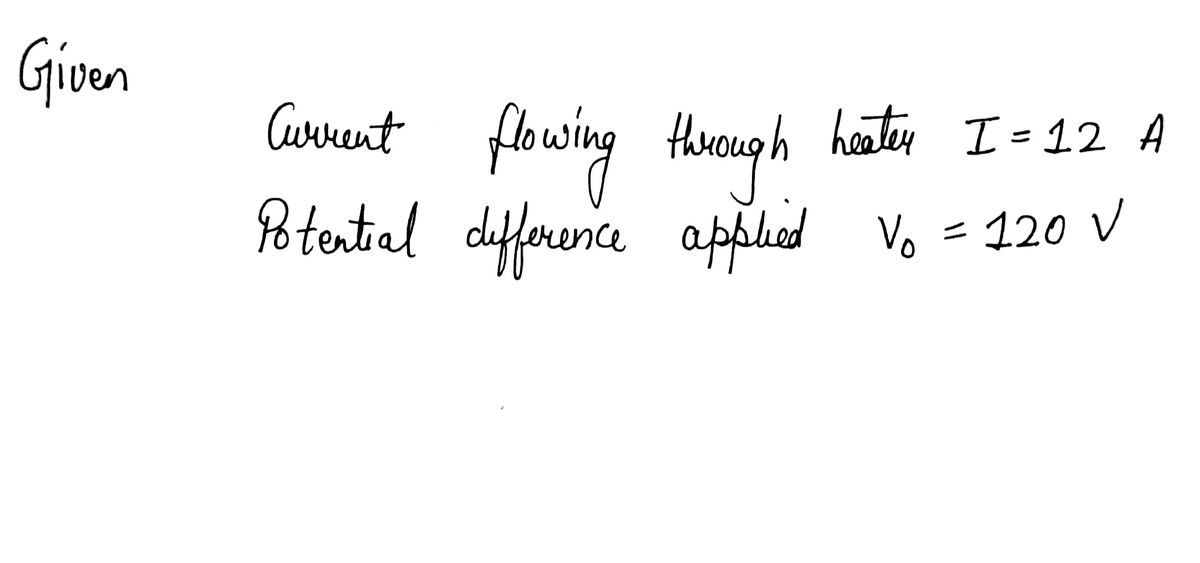 Given
Current flowing through heater I = 12 A
Potential difference applied V₀ = 120 V